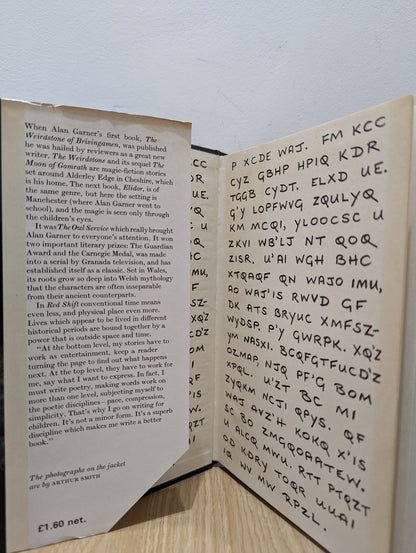 When Alan Garner's first book, The
Weirdstone of Brisingamen, was published
he was hailed by reviewers as a great new
writer. The Weirdstone and its sequel The
Moon of Gomrath are magic-fiction stories
set around Alderley Edge in Cheshire, which
is his home. The next book, Elidor, is of
the same genre, but here the setting is
Manchester (where Alan Garner went to
school), and the magic is seen only through
the children's eyes.
It was The Owl Service which really brought
Alan Garner to everyone's attention. It won
two important literary prizes: The Guardian
Award and the Carnegie Medal, was made
into a serial by Granada television, and has
established itself as a classic. Set in Wales,
its roots grow so deep into Welsh mythology
that the characters are often inseparable
from their ancient counterparts.
In Red Shift conventional time means
even less, and physical place even more.
Lives which appear to be lived in different
historical periods are bound together by a
power that is outside space and time.
"At the bottom level, my stories have to
work as entertainment, keep a reader
turning the page to find out what happens
next. At the top level, they have to work for
me, say what I want to express. In fact, I
must write poetry, making words work on
more than one level, subjecting myself to
the poetic disciplines—pace, compression,
simplicity. That's why I go on writing for
children. It's not a minor form. It's a superb
discipline which makes me write a better
book."
The photographs on the jacket
are by ARTHUR SMITH
£1.60 net.
P XCDE WAJ. FM KCC
CYZ GBHP HPIQ KDR
TGGB CYDT. ELXD UE.
G'Y LOPFWVG ZQULYQ
KM MCQI, YLOOCSC U
ZKVI WB'LJ NT QOQ
ZISR. U'AI WGH BHC
XTQAQF QN WAJO IMU,
AO WAJ'IS RWVD GF
DK ATS BRYUC XMFSZ-
WYDSP. P'Y GWRPK. XQ'Z
YM NASXI. BCQFGTFUCD'Z
OZMAP, NJQ PF'G BOM
XPQL. U'ZT BC MI
ZYQKM NCJI QPYS. QF
WAJ AVZ'H KOKQ X'IS
SC BO ZMGQOAATEW.
U ALCQ MWU. RTT PTQZT
OD KDRY TOQR UUUAI
IQ WV MW RPZL.